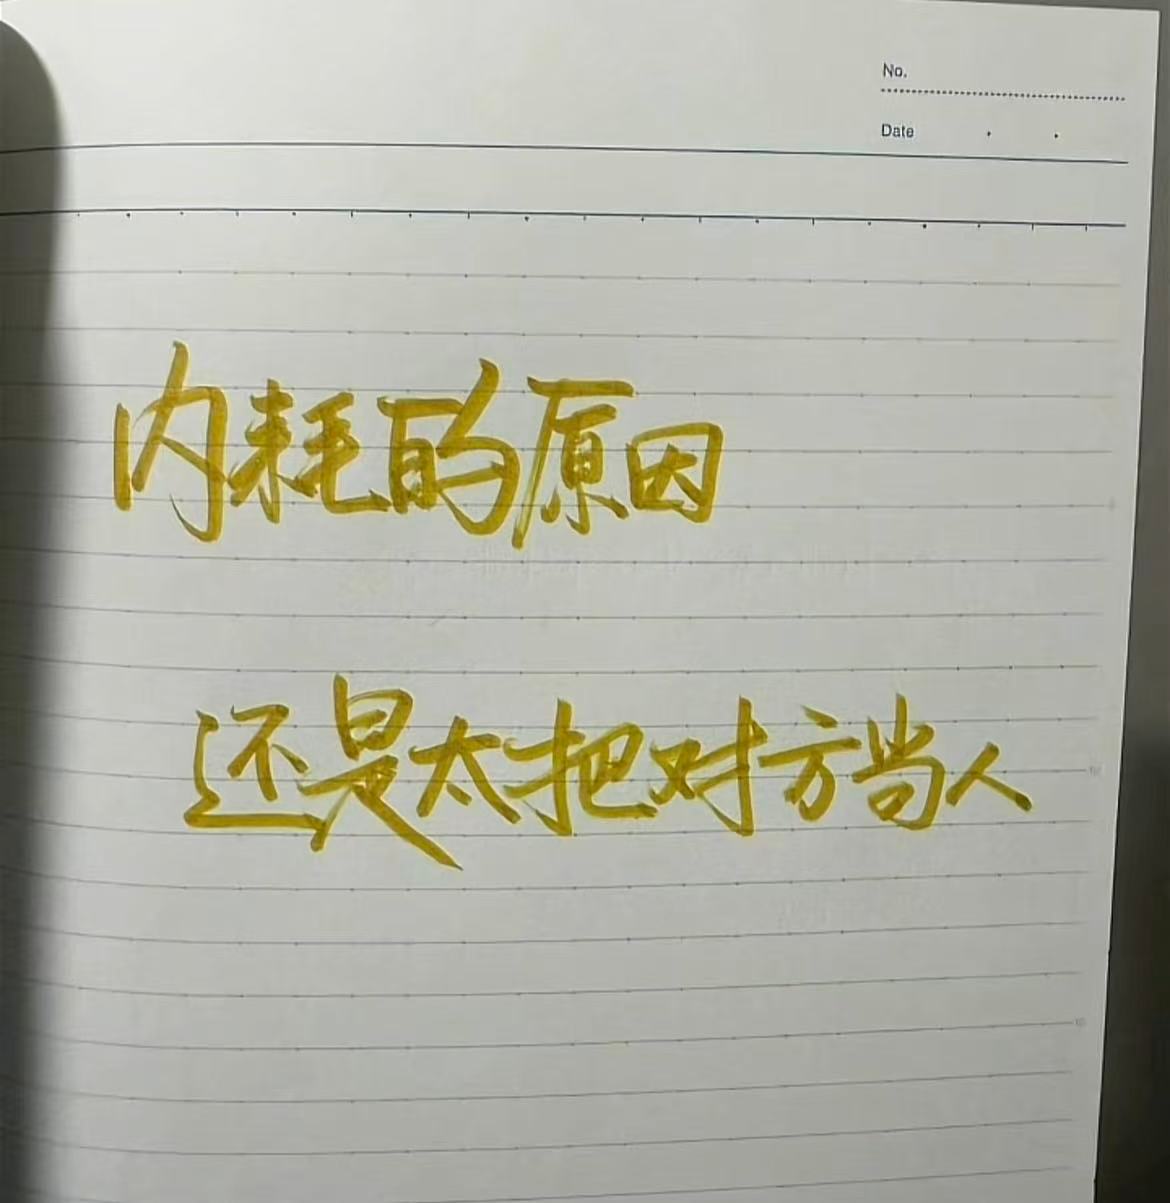 No.
Date
内耗的原因
还是太把对方当人